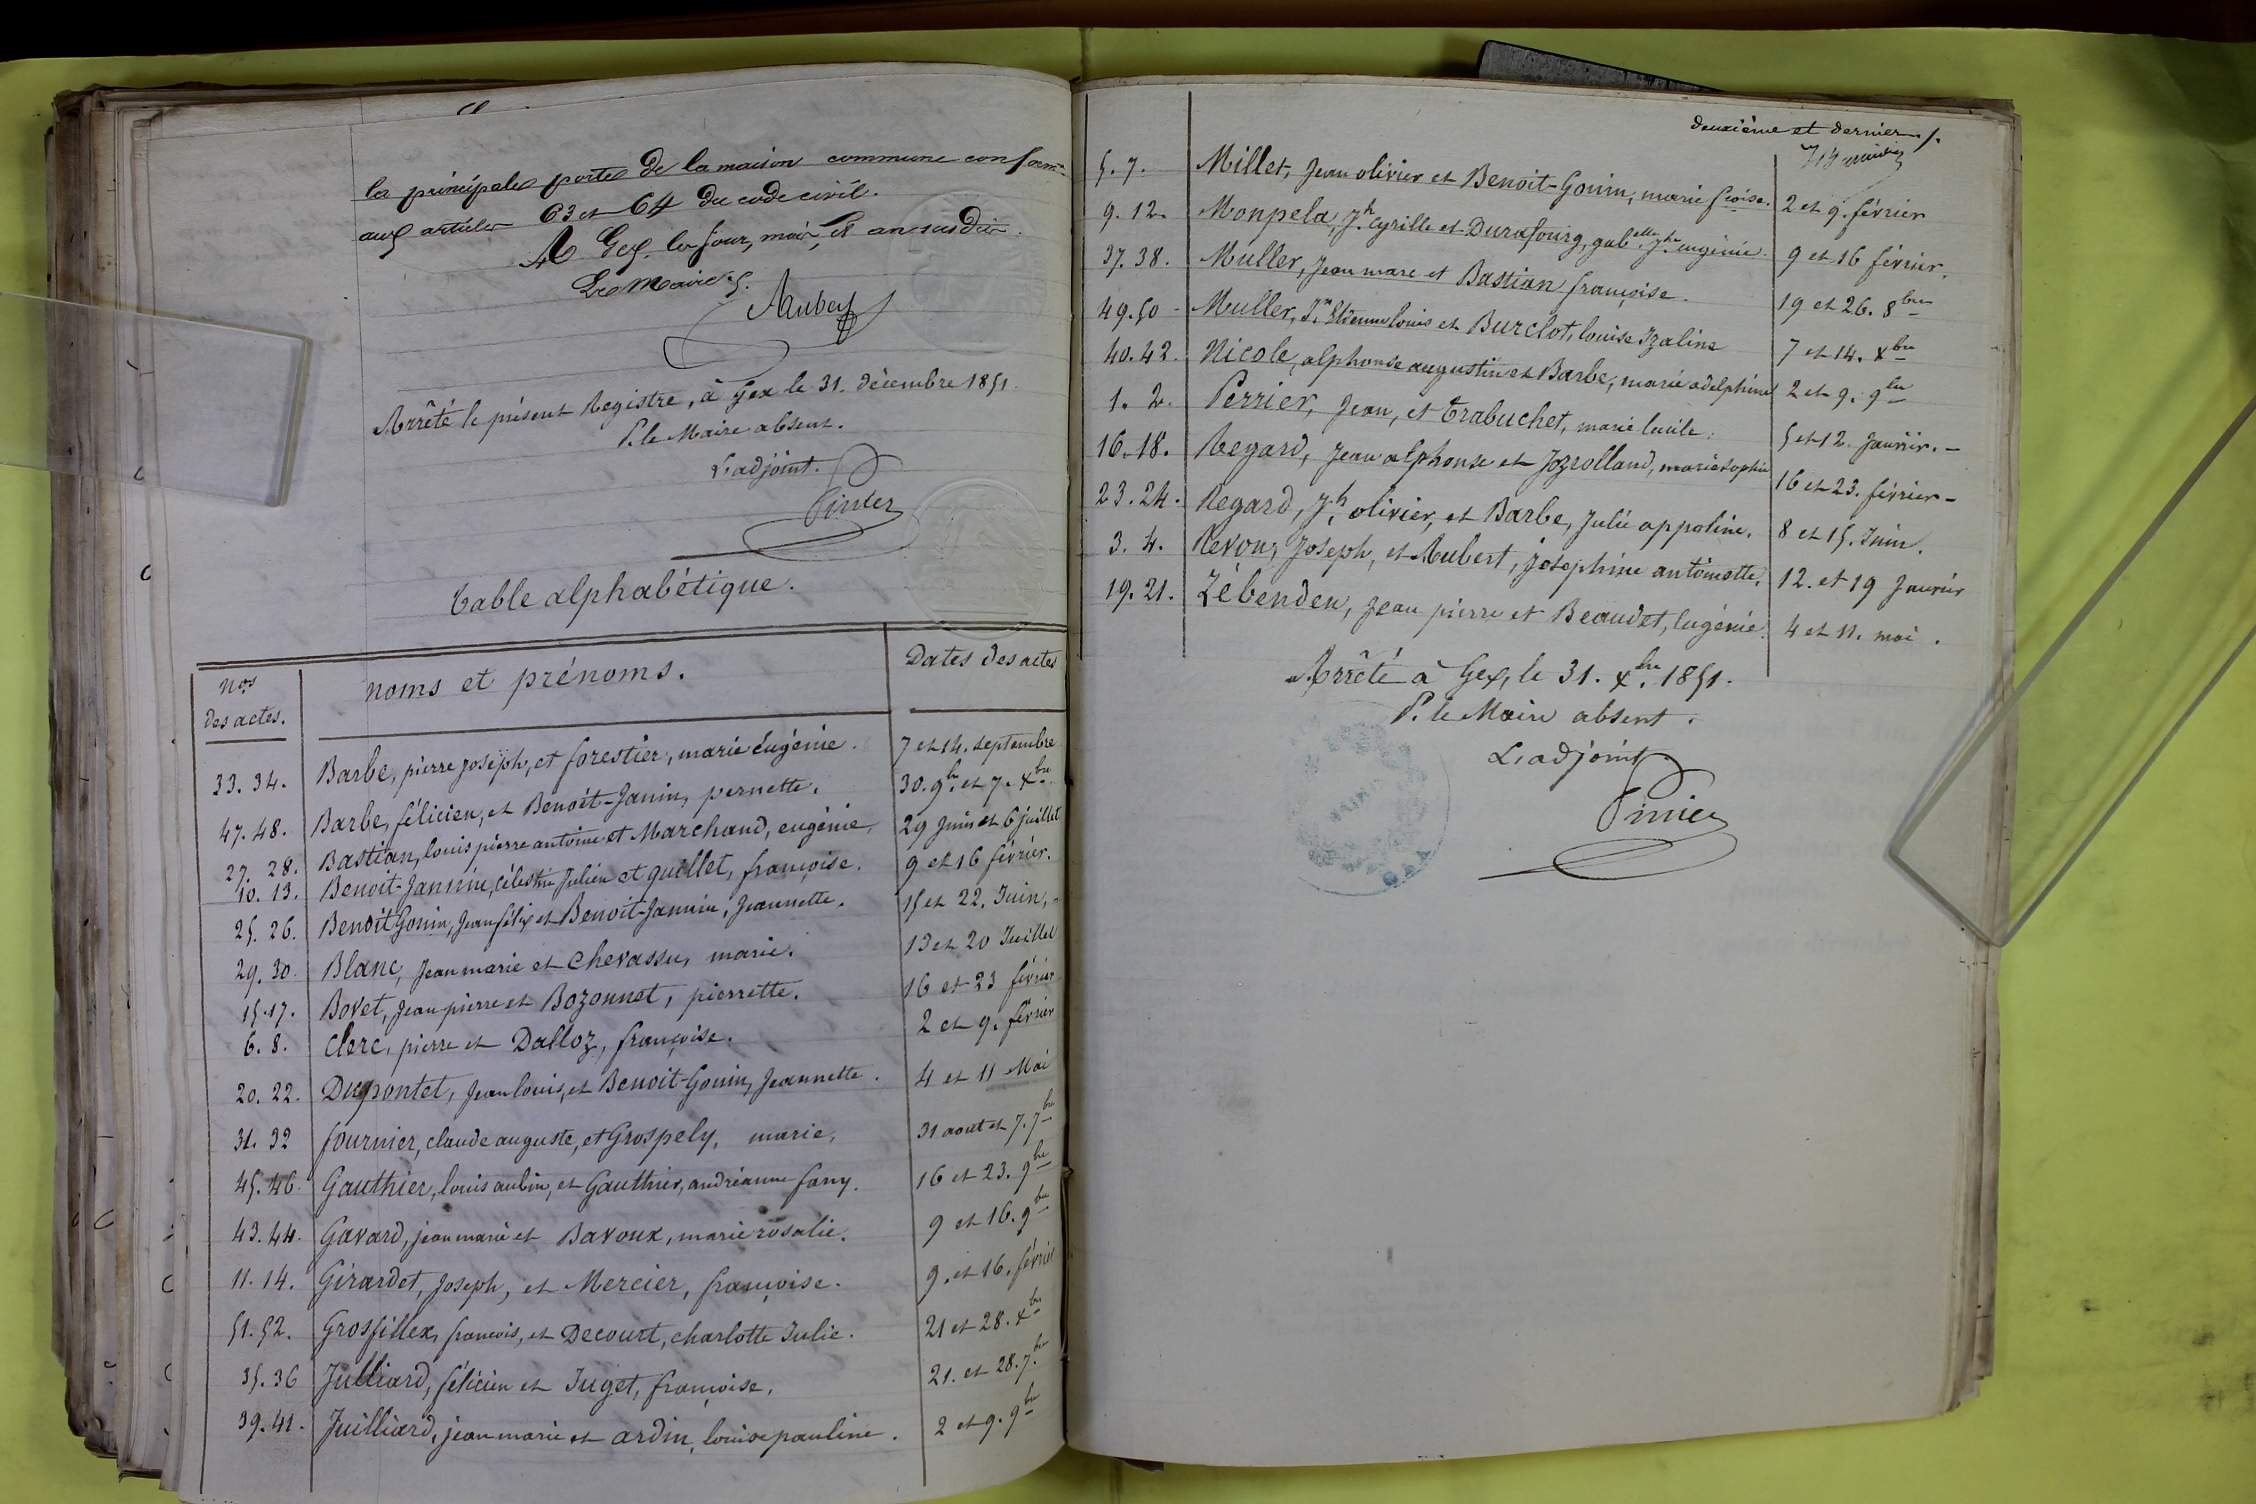 la principale porte de la maison commune conform.
aux articles 63 et 64 du code civil.
A Gex le jour, mois et an susdits.
Le Maire
Arrêté le présent Registre, à Gex le 31. décembre 1851.
P. le Maire absent.
L'adjoint.
Table alphabétique.
Nos des actes. noms et prénoms. Dates des actes
33. 34. Barbe, pierre joseph, et forestier, marie eugénie. 7 et 14. septembre
47. 48. Barbe, félicien, et Benoit-Janin, pernette. 30. 9bre et 7. Xbre
27. 28. Bastian, louis pierre antoine et Marchand, eugénie. 29 Juin et 6 juillet
10. 13. Benoit-Jannin, célestin Julien et quillet, françoise. 9 et 16 février.
25. 26. Benoit Gonin, Jean félix et Benoit-Jannin, Jeannette. 15 et 22. Juin.
29. 30. Blanc, Jean marie et Chevassu, marie. 13 et 20 Juillet
15. 17. Bovet, Jean pierre et Bozonnet, pierrette. 16 et 23 février
6. 8. Clerc, pierre et Dalloz, françoise. 2 et 9. février
20. 22. Dupontet, Jean louis, et Benoit-Gonin, Jeannette. 4 et 11 Mai
31. 32 fournier, claude auguste, et Grospely, marie, 31 aout et 7. 7bre
45. 46. Gauthier, louis aubin, et Gauthier, andréanne fany. 16 et 23. 9bre
43. 44. Gavard, jean marie et Bavoux, marie rosalie. 9 et 16. 9bre
11. 14. Girardet, Joseph, et Mercier, françoise. 9. et 16. février
51. 52. Grosfillex, françois, et Decourt, charlotte Julie. 21 et 28. Xbre
35. 36 Julliard, félicien et Juget, françoise, 21. et 28. 7bre
39. 41. Juilliard, jean marie et ardin, louise pauline. 2 et 9. 9bre
deuxième et dernier
5. 7. Millet, Jean olivier et Benoit-Gonin, marie froise. 2 et 9. février
9. 12. Monpela, Jh. Cyrille et Durafourg, gabelle. Jhe. eugénie. 9 et 16 février.
37. 38. Muller, Jean marc et Bastian françoise. 19 et 26. 8bre
49. 50 Muller, Jn. Etienne louis et Burclot, louise Izaline 7 et 14. Xbre
40. 42. Nicole, alphonse augustin et Barbe, marie adelphine 2 et 9. 9bre
1. 2. Perrier, Jean, et Trabuchet, marie lucile. 5 et 12. Janvier.
16. 18. Regard, Jean alphonse et Jozrolland, marie sophie 16 et 23. février
23. 24. Regard, Jh. olivier, et Barbe, Julie appoline. 8 et 15. Juin.
3. 4. Revon, Joseph, et Aubert, josephine antoinette. 12. et 19 Janvier
19. 21. Zébenden, Jean pierre et Beaudet, Eugénie. 4 et 11. mai.
Arrêté à Gex, le 31. Xbre. 1851.
P. le Maire absent.
L'adjoint